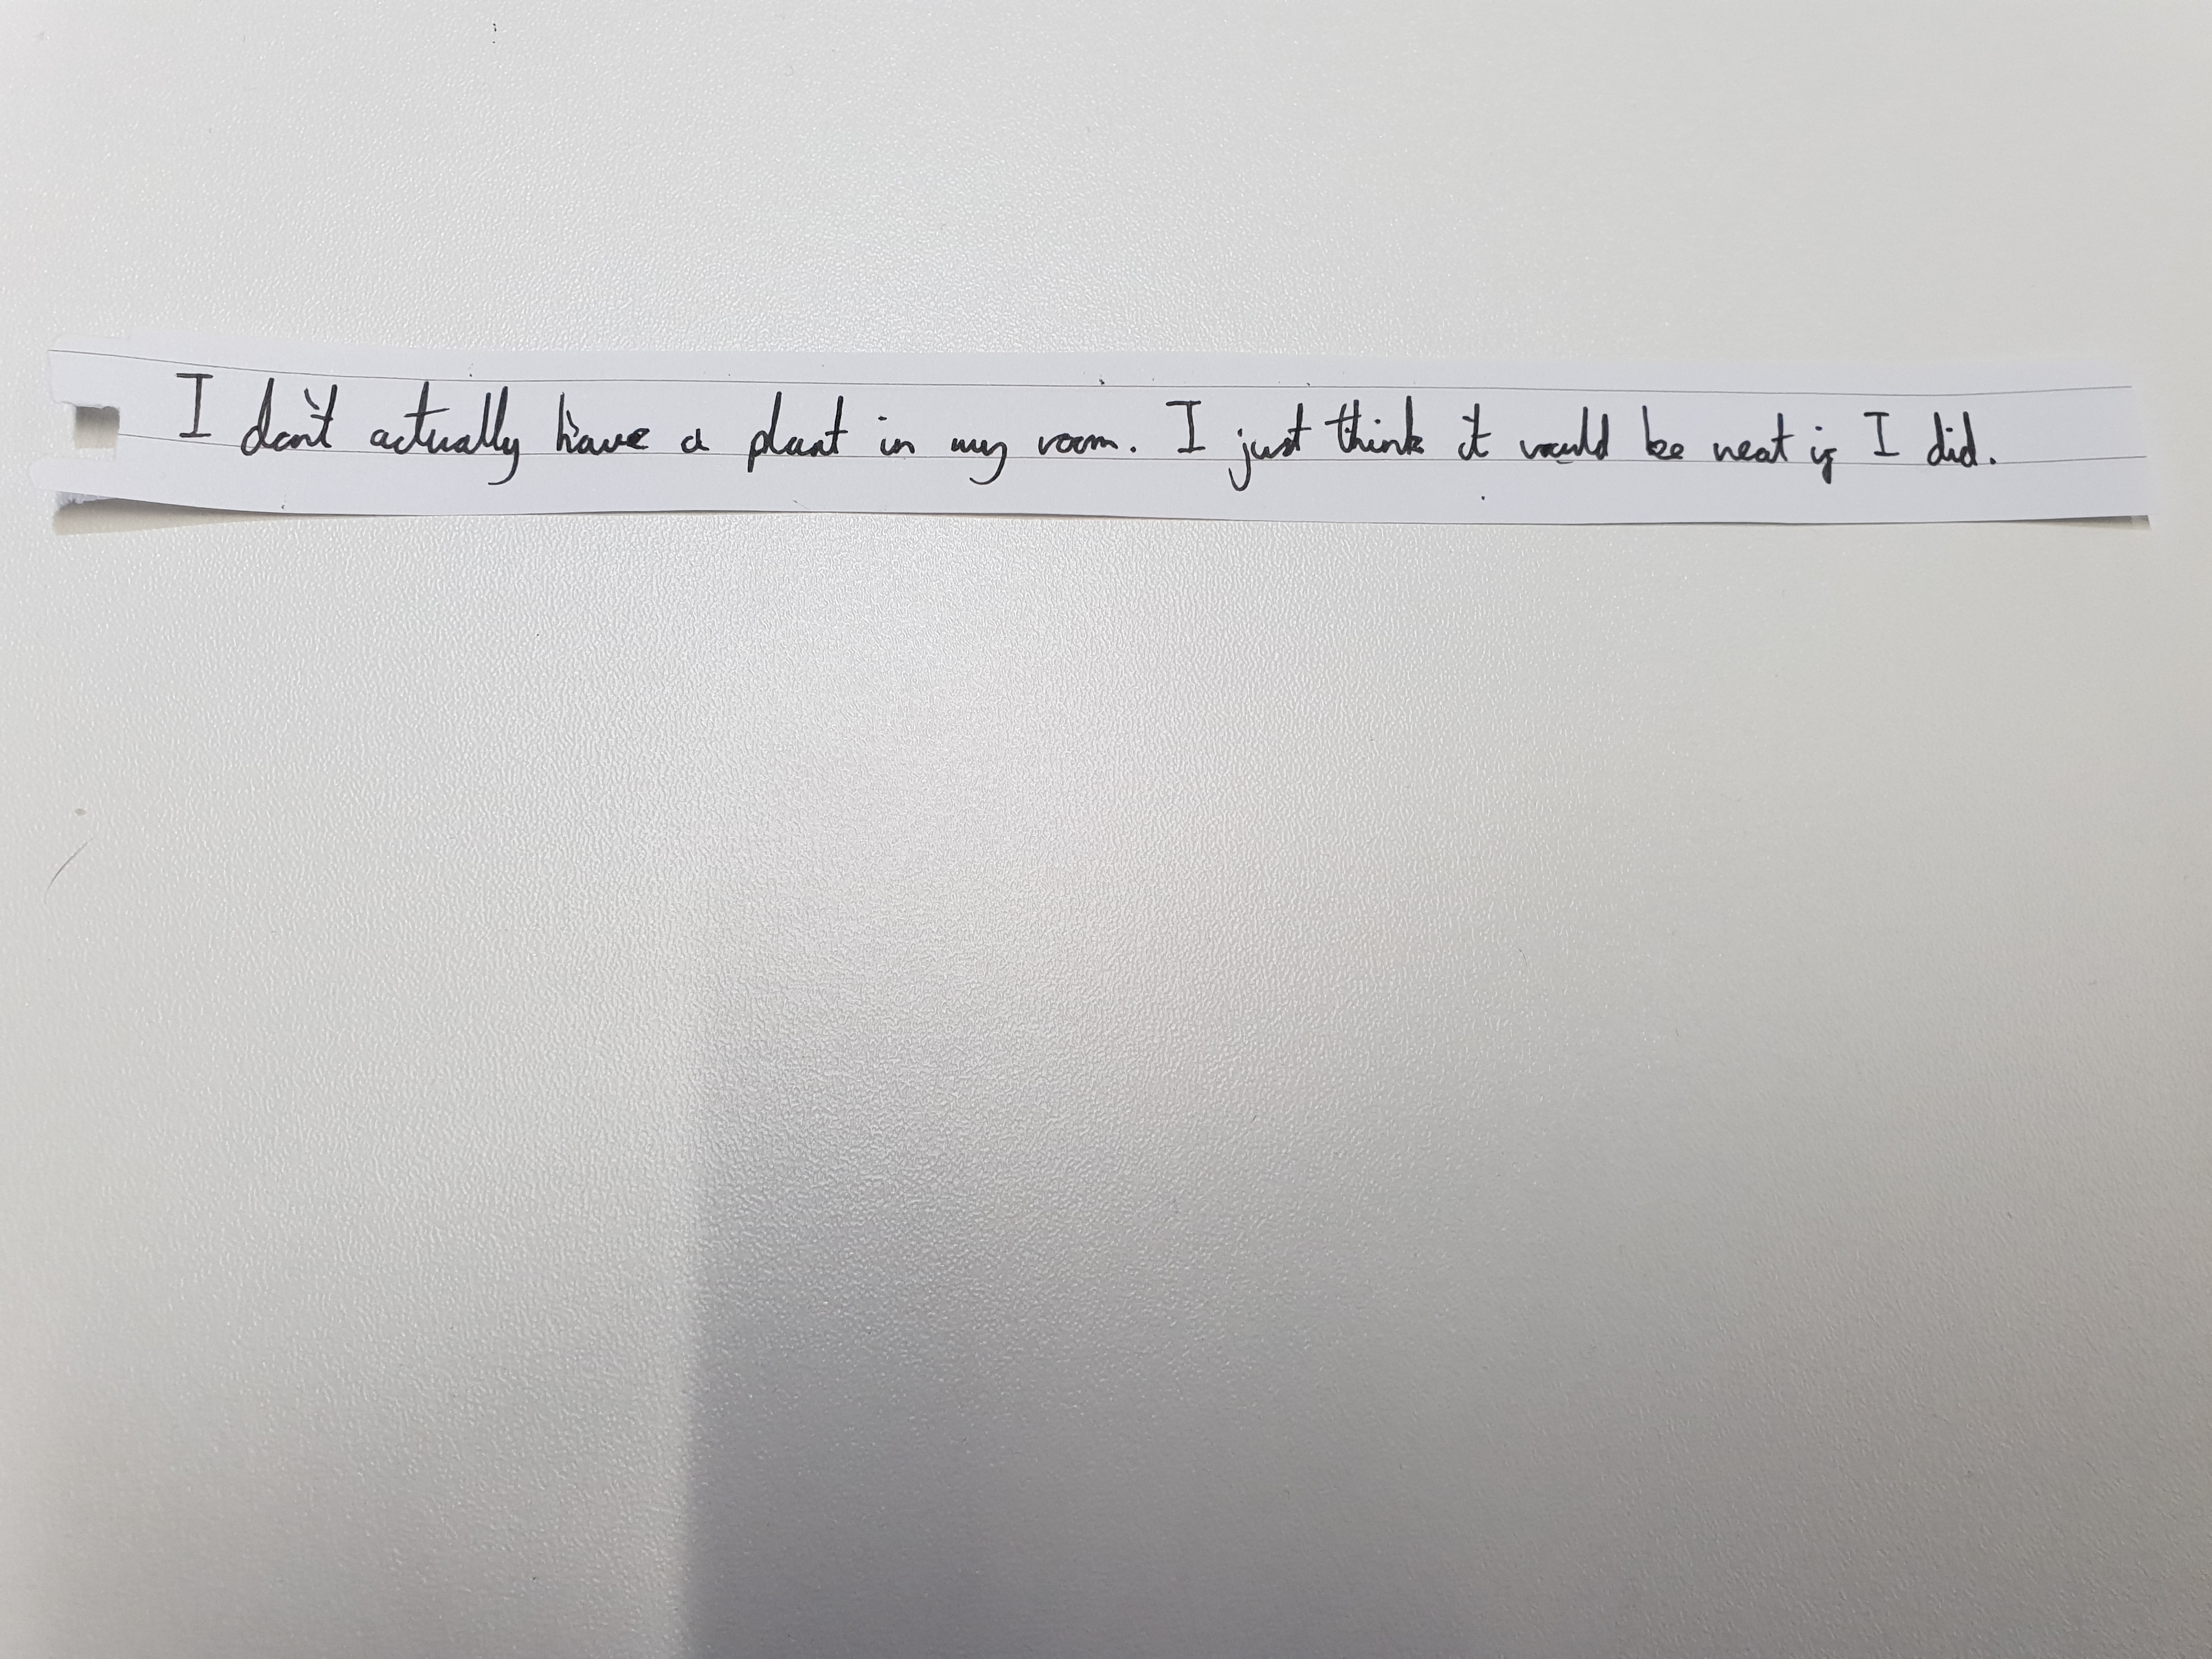 I don't actually have a plant in my room. I just think it would be neat if I did.